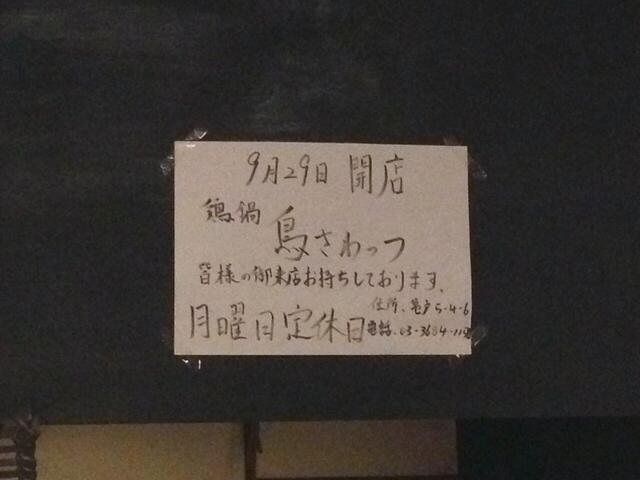 9月29日 開店
鶏鍋 鳥さわっつ
皆様の御来店お持ちしております。
住所、亀戸5-4-6
月曜日定休日 電話、03-3684-